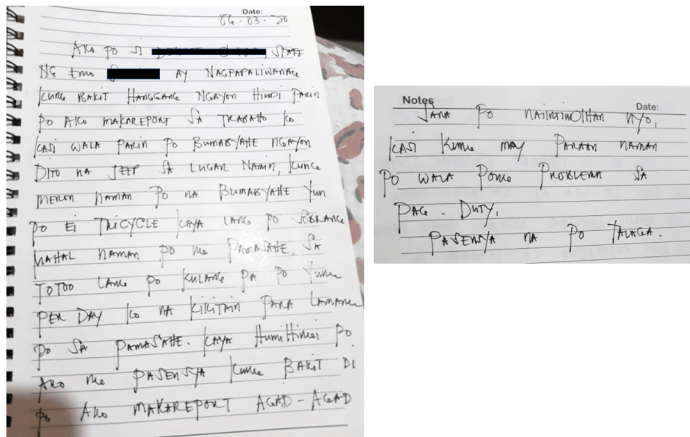 Date:
06-03-20
AKO PO SI STAFF
NG EMO AY NAGPAPALIWANAG
KUNG BAKIT HANGGANG NGAYON HINDI PARIN
PO AKO MAKAREPORT SA TRABAHO KO
KASI WALA PARIN PO BUMABYAHE NGAYON
DITO NA JEEP SA LUGAR NAMIN, KUNG
MERON NAMAN PO NA BUMABYAHE YUN
PO EI TRICYCLE KAYA LANG PO SOBRANG
MAHAL NAMAN PO NG PAMASAHE. SA
TOTOO LANG PO KULANG PA PO YUNG
PER DAY KO NA KIKITAIN PARA LAMANG
PO SA PAMASAHE. KAYA HUMIHINGI PO
AKO NG PASENSYA KUNG BAKIT DI
PO AKO MAKAREPORT AGAD-AGAD
Notes
Date:
SANA PO NAIINTINDIHAN NYO,
KASI KUNG MAY PARAAN NAMAN
PO WALA PONG PROBLEMA SA
PAG. DUTY.
PASENSYA NA PO TALAGA.